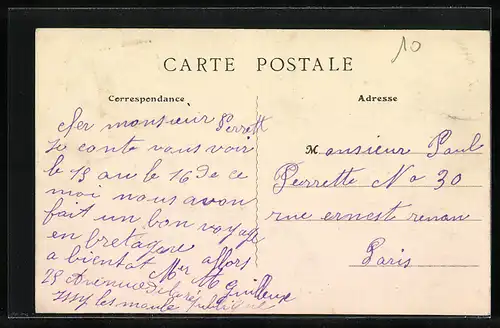 10
CARTE POSTALE
Correspondance
Adresse
cher monsieur Perrett
Je conte vous voir
le 15 au le 16 de ce
moi nous avon
fait un bon voyage
en bretagne
a bientot Mer allors
M Guilleux
25 Avenue de la republique
Issy les moule
Monsieur Paul
Perrette No 30
rue ernest renan
Paris